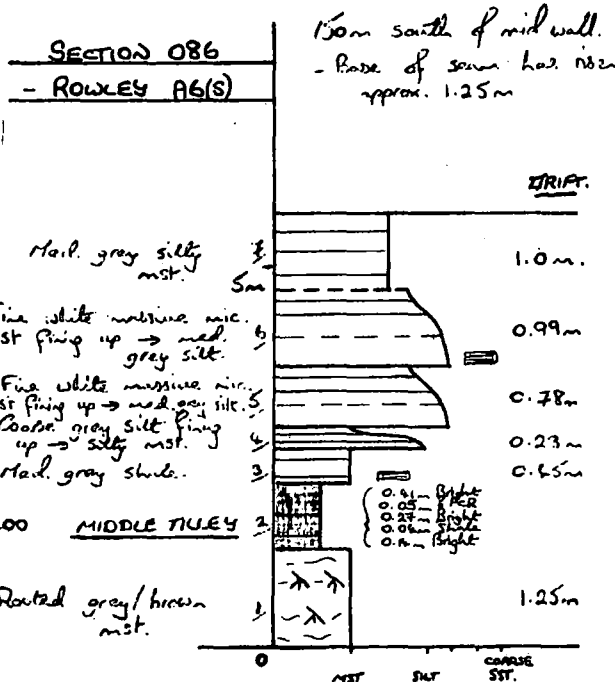 SECTION 086
- ROWLEY A6(S)
150m south of mid wall.
- Base of seam has risen
approx. 1.25m
DRIFT.
Med. grey silty
mst.
7
1.0m.
5m
Fine white massive mic.
sst fining up → med.
grey silt.
6
0.99m
Fine white massive mic.
sst fining up → med. grey silt.
5
0.78m
Coarse grey silt fining
up → silty mst.
4
0.23m
Med. grey shale.
3
0.45m
00 MIDDLE TILLEY 2
0.41m Bright
0.05m PCR
0.27m Bright
Shale
Bright
Rooted grey/brown
mst.
1
1.25m
0
MST SILT COARSE
SST.